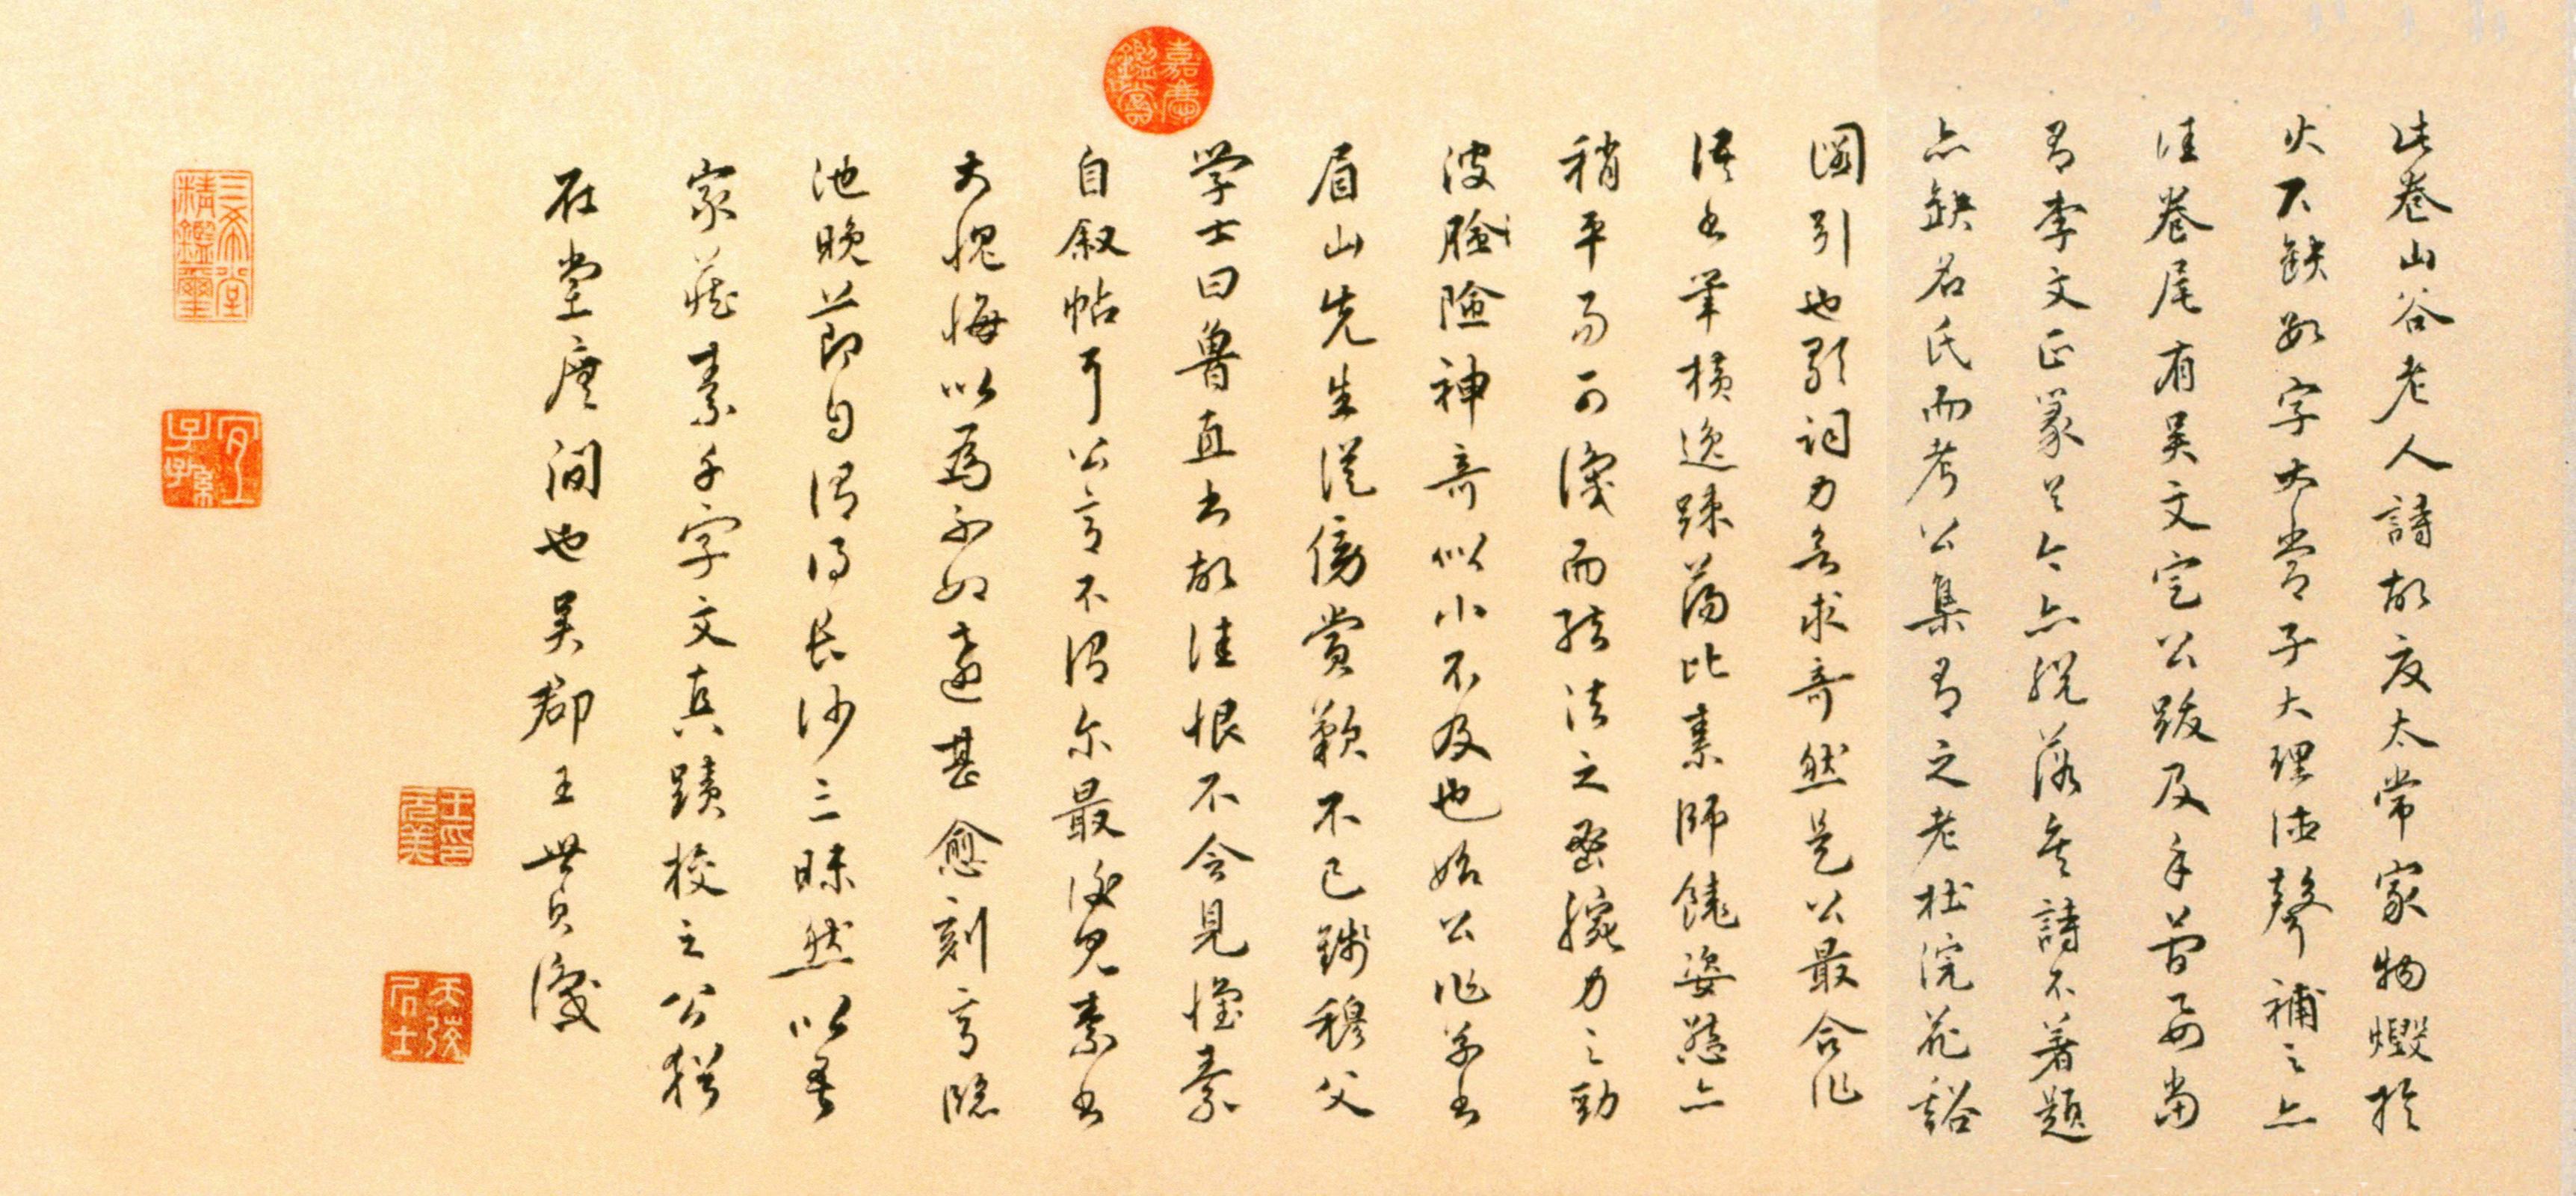 此卷山谷老人詩故友太常家物燬於
火不缺數字太常子大理德聲補之亦
佳卷尾有吴文定公跋及手簡要當
有李文正篆
今亦脱落矣詩不著題
亦缺名氏而考公集有之老杜浣花谿
圖引也歌詞力欲求奇然是公最合作
語書筆橫逸疎蕩比素師饒姿態亦
稍平易可識而結法之密腕力之勁
波險神奇似小不及也始公作草書
眉山先生從傍賞歎不已錢穆父
學士曰魯直書故佳恨不令見懷素
自叙帖耳公意不謂尔最後見素書
大愧悔以爲不如遠甚愈刻意臨
池晚節自謂得長沙三昧然以吾
家藏素千字文真蹟校之公猶
在堂廡間也吴郡王世貞識
嘉慶鑑賞
三希堂精鑑璽
宜子孫
王元美印
天弢居士